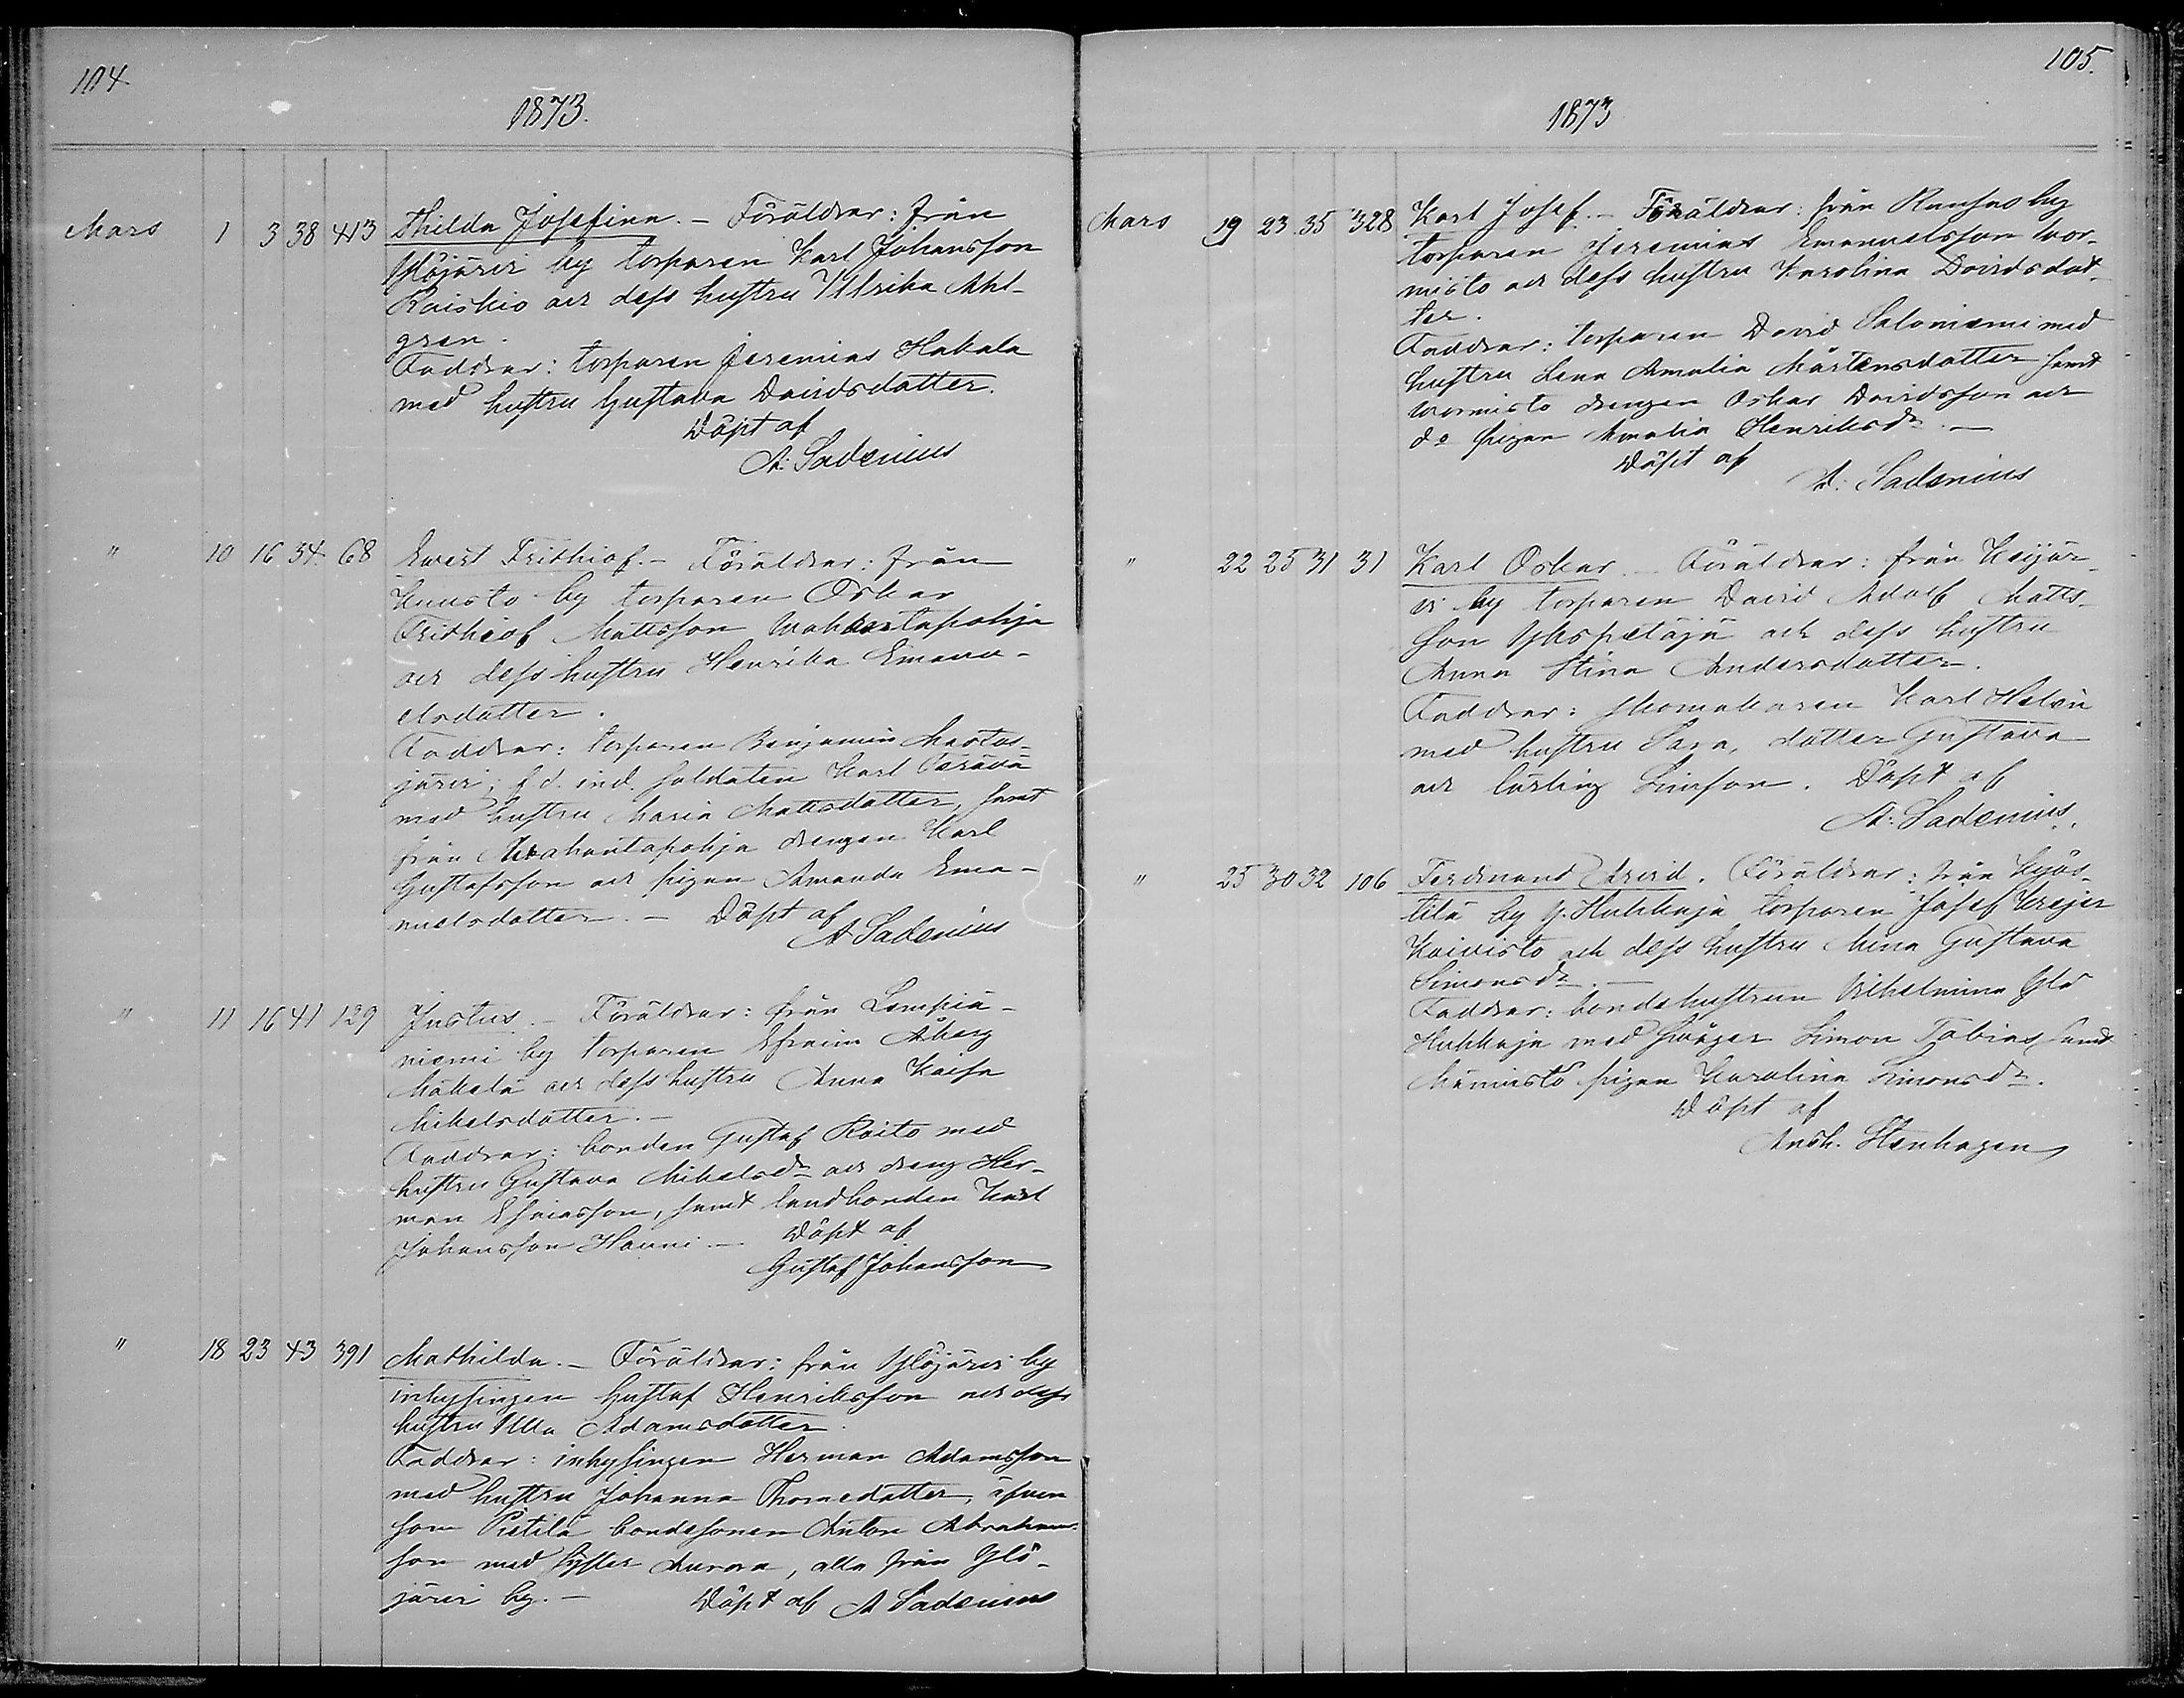 104.
1873.
Mars 1 3 38 413 Thilda Josefina. - Föräldrar: från
Ylöjärvi by torparen Karl Johansson
Raiskio och dess hustru Ullrika Ahl-
gren.
Faddrar: torparen Jeremias Hakala
med hustru Gustava Davidsdatter.
Döpt af
A: Sadenius
" 10 16 34 68 Ewert Frithiof. - Föräldrar: från
by torparen Oskar
Frithiof Mattsson Wahantapohja
och dess hustru Henrika Emanu-
elsdatter.
Faddrar: torparen Benjamin Mastos-
järvi; f.d. ind. soldaten Karl Perävä
med hustru Maria Mattsdatter, samt
från Wahantapohja drengen Karl
Gustafsson och pigan Amanda Ema-
nuelsdatter. - Döpt af
A Sadenius
" 11 16 41 129 Justus. - Föräldrar: från Lempiä-
niemi by torparen Efraim Åberg
Mäkelä och dess hustru Anna Kaisa
Mikelsdatter. -
Faddrar: bonden Gustaf Raito med
hustru Gustava Mikelsdr och dreng Her-
man Esaiasson, samt landbonden Karl
Johansson Hanni. - Döpt af
Gustaf Johansson
" 18 23 43 391 Mathilda. - Föräldrar: från Ylöjärvi by
inhysingen Gustaf Henriksson och dess
hustru Ulla Adamsdatter.
Faddrar: inhysingen Herman Adamsson
med hustru Johanna Thomedatter, äfven
som Pietilä bondesonen Anton Abraham-
son med syster Aurora, alla från Ylö-
järvi by. - Döpt af A Sadenius
105.
1873
Mars 19 23 35 328 Karl Josef. - Föräldrar: från Runsas by
torparen Jeremias Emanuelsson Wor-
misto och dess hustru Karolina Davidsdat-
ter.
Faddrar: torparen David Saloniemi med
hustru Lena Amalia Mårtensdatter samt
Wormisto drengen Oskar Davidsson och
do pigan Amalia Henriksdr. -
Döpt af
A: Sadenius
" 22 25 31 31 Karl Oskar. - Föräldrar: från Keijär-
vi by torparen David Adolf Matts-
son Yhspetäjä och dess hustru
Anna Stina Andersdatter.
Faddrar: skomakaren Karl Helén
med hustru Sara, datter Gustava
och lärling Simson. Döpt af
A: Sadenius.
" 25 30 32 106 Ferdinand Arvid. Föräldrar: från Kyös-
tilä by Y. Huhkaja torparen Josef Krejer
Koivisto och dess hustru Mina Gustava
Simonsdr. -
Faddrar: bondehustrun Vilhelmina Ylö
Huhkaja med svåger Simon Tobias, samt
Männistö pigan Karolina Simonsdr.
Döpt af
Ansh. Stenhagen